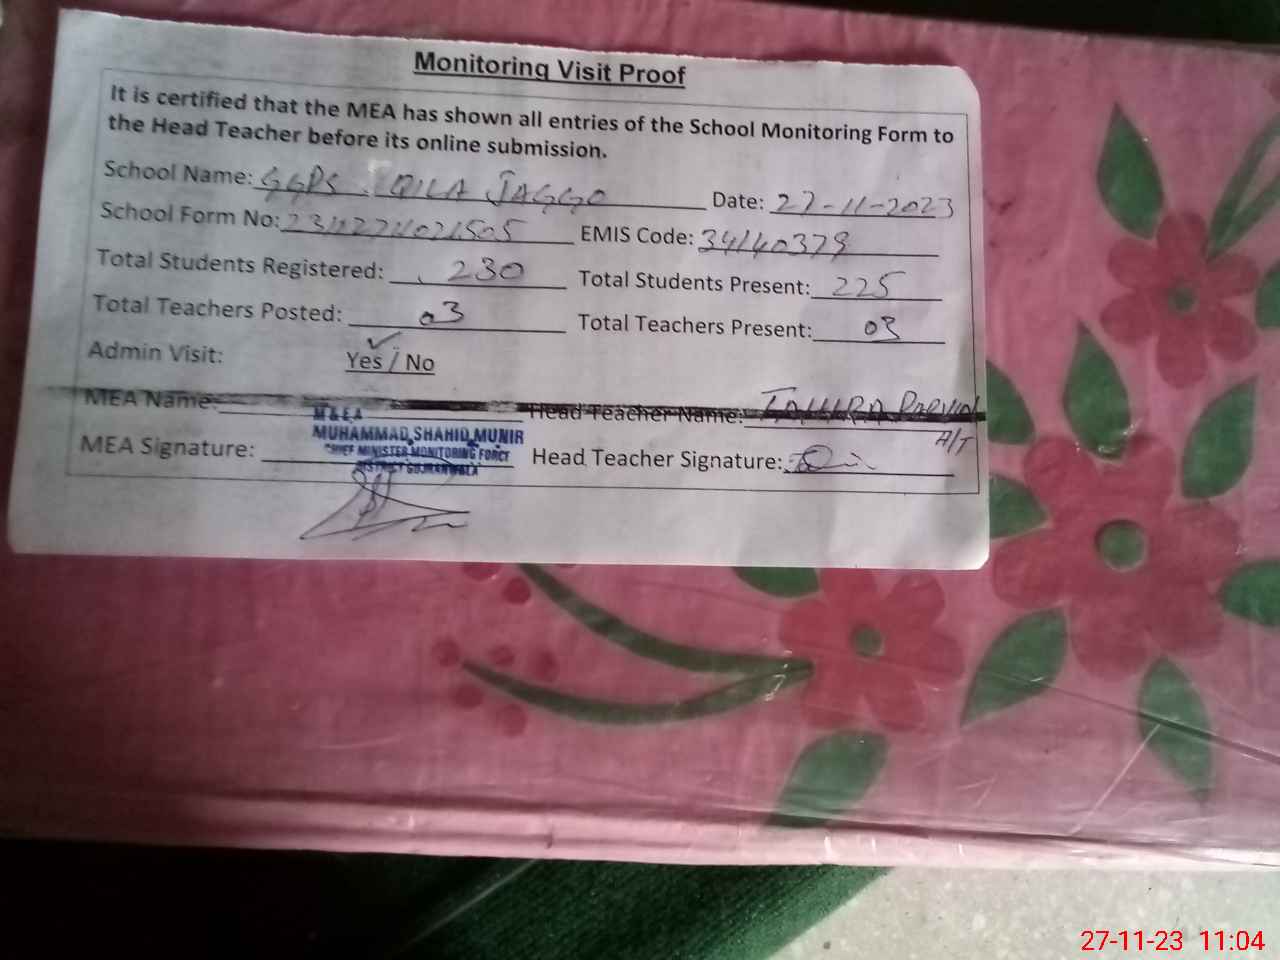 Monitoring Visit Proof
It is certified that the MEA has shown all entries of the School Monitoring Form to
the Head Teacher before its online submission.
School Name: GGPS. QILA JAGGO Date: 27-11-2023
School Form No: EMIS Code: 34140379
Total Students Registered: 230 Total Students Present: 225
Total Teachers Posted: 03 Total Teachers Present: 03
Admin Visit: Yes / No
MEA Name: Head Teacher Name: TAHIRA PARVIN
H/T
M&EA
MUHAMMAD SHAHID MUNIR
CHIEF MINISTER MONITORING FORCE
DISTRICT GUJRANWALA
MEA Signature: Head Teacher Signature:
27-11-23 11:04